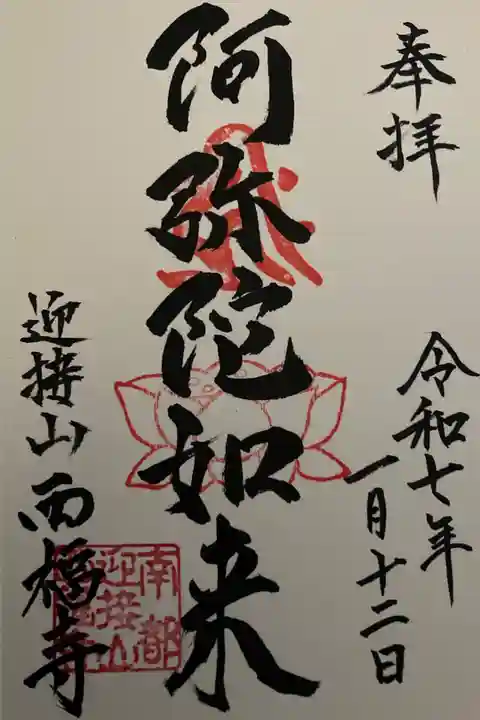 奉拝
令和七年
一月十二日
阿弥陀如来
迎接山西福寺
南都
迎接山